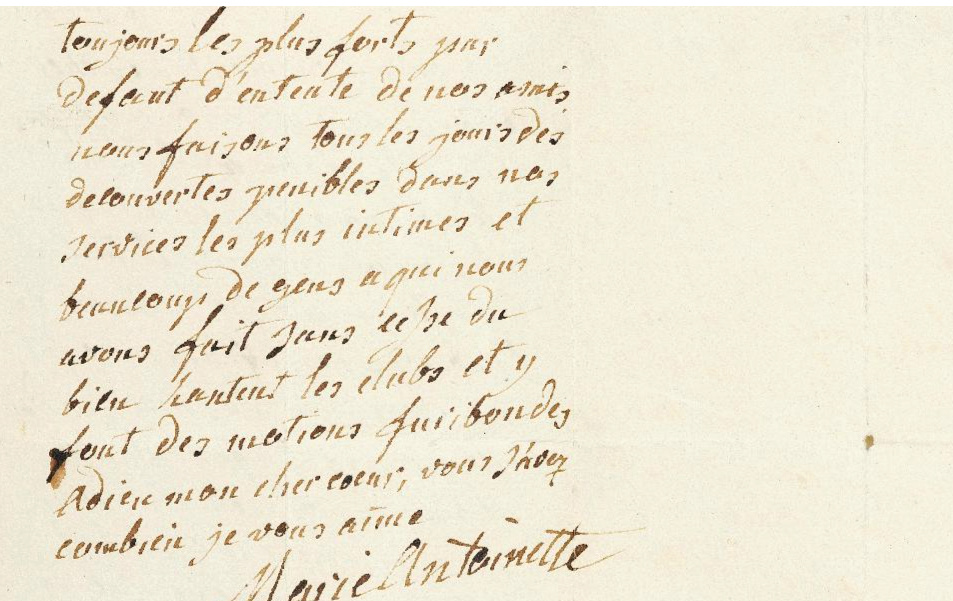 toujours les plus forts par
defaut d'entente de nos amis
nous faisons tous les jours des
decouvertes penibles dans nos
services les plus intimes et
beaucoup de gens a qui nous
avons fait sans cesse du
bien hantent les clubs et y
font des motions furibondes
Adieu mon cher coeur, vous savez
combien je vous aime
Marie Antoinette